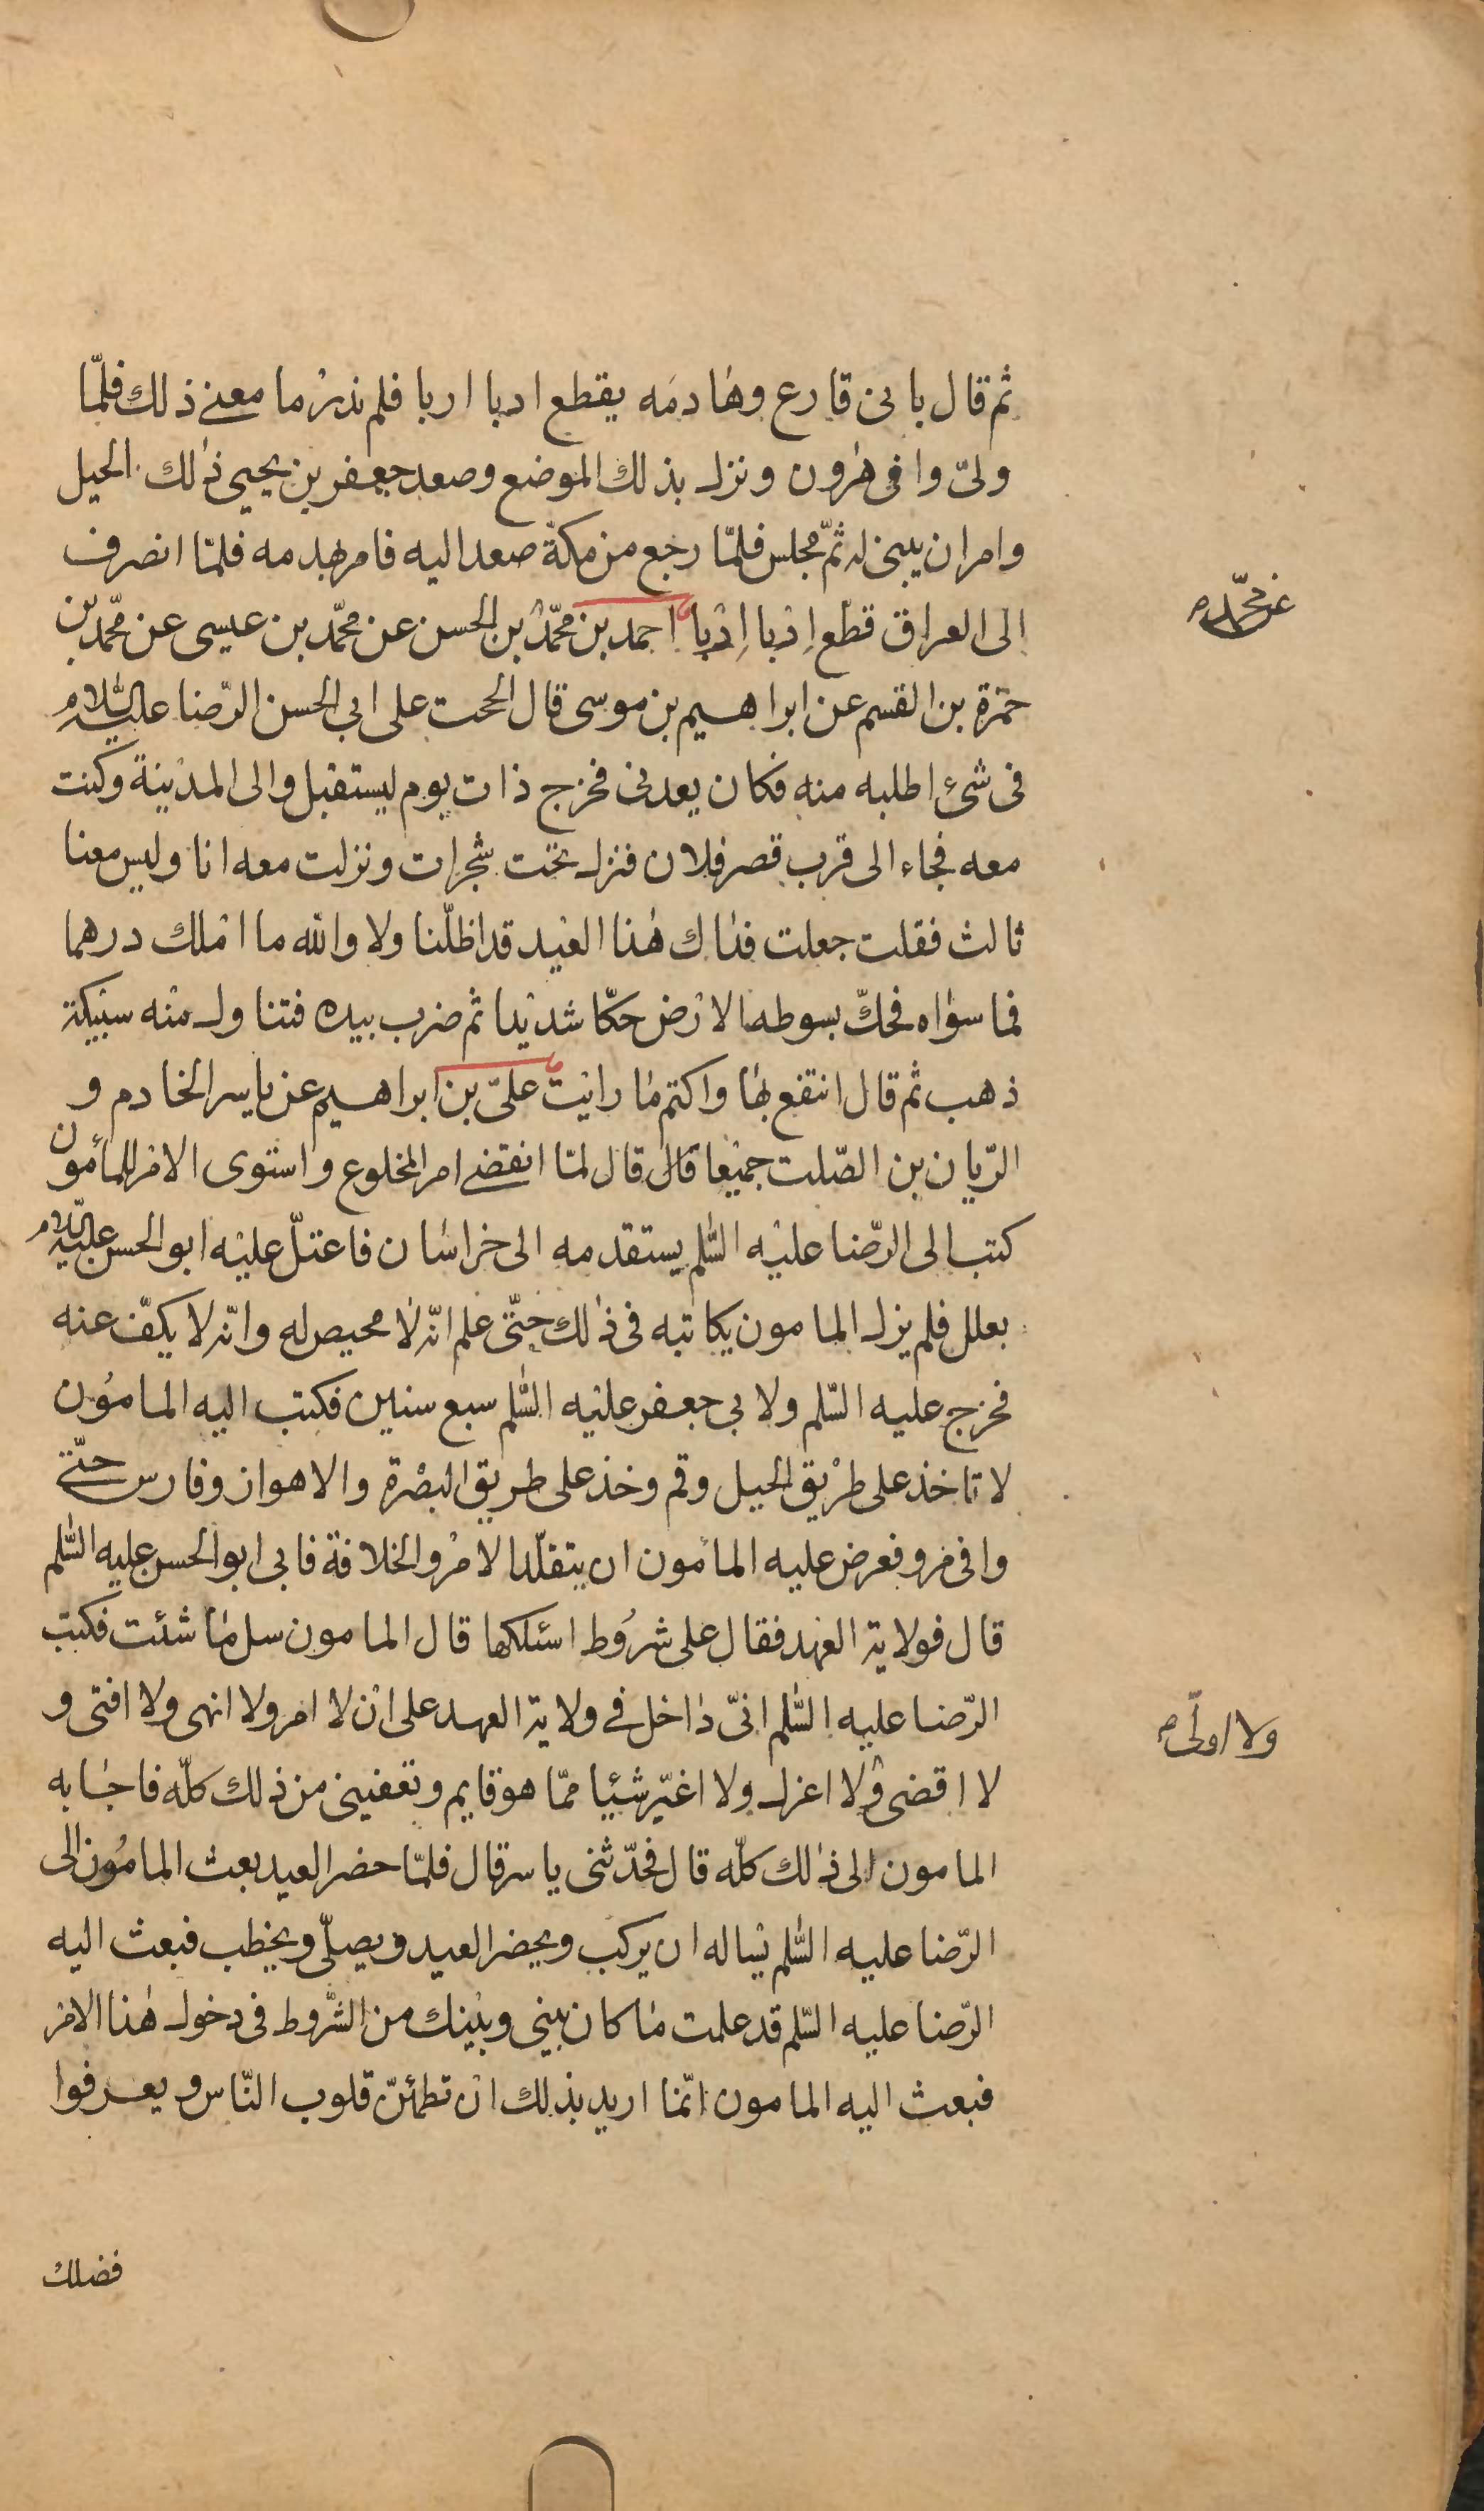 ثم قال بانى قارع وهادمه يقطع اربا اربا فلم ندر ما معنى ذلك فلمّا
ولىّ وافى هٰرون ونزل بذلك الموضع وصعد جعفر بن يحيى ذلك الجبل
وامر ان يبنى له ثمّ مجلس فلمّا رجع من مكة صعد اليه فامر بهدمه فلمّا انصرف
الى العراق قطّع اِرْبا اِرْبا احمد بن محمّد بن الحسن عن محمّد بن عيسى عن محمّد بن
عن محمّد م
حمزة بن القسم عن ابراهيم بن موسى قال الححت على ابى الحسن الرّضا عليه السّلام
فى شئ اطلبه منه فكان يعدنى فخرج ذات يوم ليستقبل والى المدينة وكنت
معه فجاء الى قرب قصر فلان فنزل تحت شجرات ونزلت معه انا وليس معنا
ثالث فقلت جعلت فداك هٰذا العيد قد اظلّنا ولا والله ما املك درهما
فما سواه فحكّ بسوطه الارض حكّا شديدا ثم ضرب بيده فتناول منه سبيكة
ذهب ثم قال انتفع بها واكتم ما رايت علىّ بن ابراهيم عن ياسر الخادم و
الرّيان بن الصّلت جميعا قال قال لمّا انقضى امر المخلوع واستوى الامر للمأمون
كتب الى الرّضا عليه السّلم يستقدمه الى خراسان فاعتلّ عليه ابو الحسن عليه السّلام
بعلل فلم يزل المامون يكاتبه فى ذلك حتّى علم انّه لا محيص له وانّه لا يكفّ عنه
فخرج عليه السّلم ولابى جعفر عليه السّلم سبع سنين فكتب اليه المامون
لا تاخذ على طريق الجبل وقم وخذ على طريق البصرة والاهواز وفارس حتّى
وافى مرو فعرض عليه المامون ان يتقلّد الامر والخلافة فابى ابو الحسن عليه السّلم
قال فولاية العهد فقال على شروط اسئلكها قال المامون سل ما شئت فكتب
الرّضا عليه السّلم انىّ داخل فى ولاية العهد على ان لا امر ولا انهى ولا افتى و
ولا اولّى م
لا اقضى ولا اعزل ولا اغيّر شيئا ممّا هو قايم وتعفينى من ذلك كلّه فاجابه
المامون الى ذلك كلّه قال فحدّثنى ياسر قال فلمّا حضر العيد بعث المامون الى
الرّضا عليه السّلم يساله ان يركب ويحضر العيد ويصلّى ويخطب فبعث اليه
الرّضا عليه السّلم قد علمت ما كان بينى وبينك من الشّروط فى دخول هٰذا الامر
فبعث اليه المامون انّما اريد بذلك ان تطمئنّ قلوب النّاس ويعرفوا
فضلك